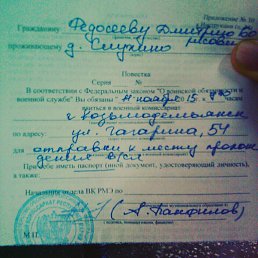 Приложение № 10
Гражданину Федосееву Дмитрию Бо
рисови
проживающему д. Смукино
Повестка
Серия №
В соответствии с Федеральным законом "О воинской обязанности и
военной службе" Вы обязаны ноября 15 часам
явиться в военный комиссариат
г. Козьмодемьянск
по адресу: ул. Гагарина, 54
для отправки к месту прохож
дения в/сл
При себе иметь паспорт (иной документ, удостоверяющий личность),
а также:
Начальник отдела ВК РМЭ по
(А. Панфилов)
М.П.